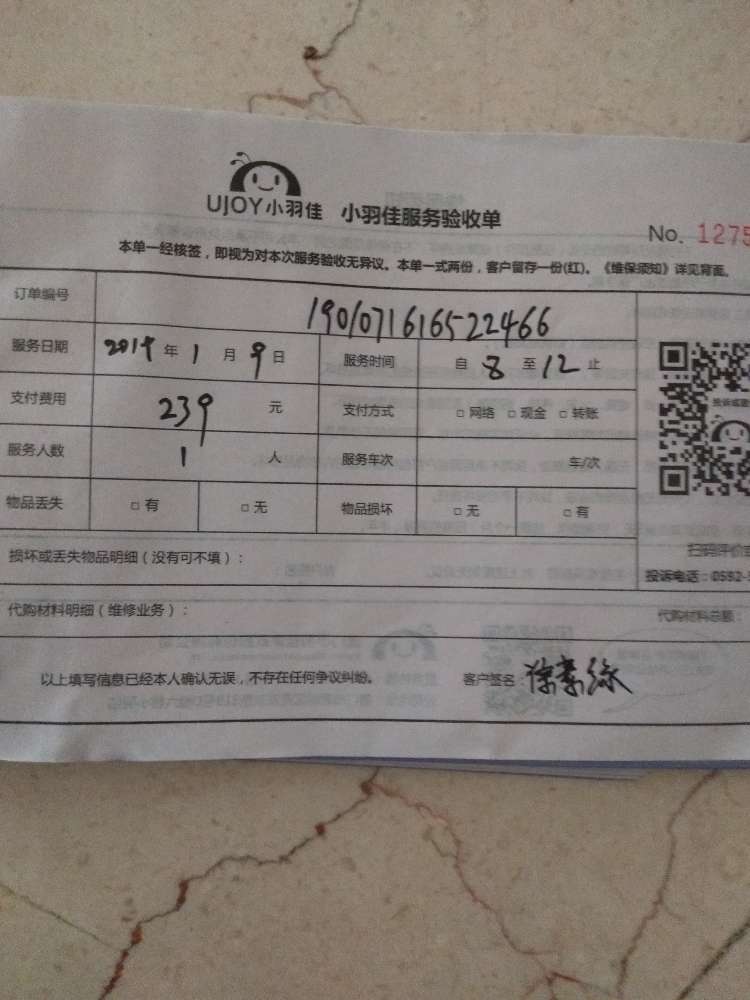 UJOY小羽佳 小羽佳服务验收单
No. 1275
本单一经核签，即视为对本次服务验收无异议。本单一式两份，客户留存一份(红)。《维保须知》详见背面。
订单编号 190107161652​2466
服务日期 2019 年 1 月 9 日 服务时间 自 8 至 12 止
支付费用 239 元 支付方式 □ 网络 □ 现金 □ 转账
服务人数 1 人 服务车次 车/次
物品丢失 □ 有 □ 无 物品损坏 □ 无 □ 有
损坏或丢失物品明细（没有可不填）：
扫码评价
投诉电话：0592-
代购材料明细（维修业务）：
代购材料总额：
以上填写信息已经本人确认无误，不存在任何争议纠纷。 客户签名：